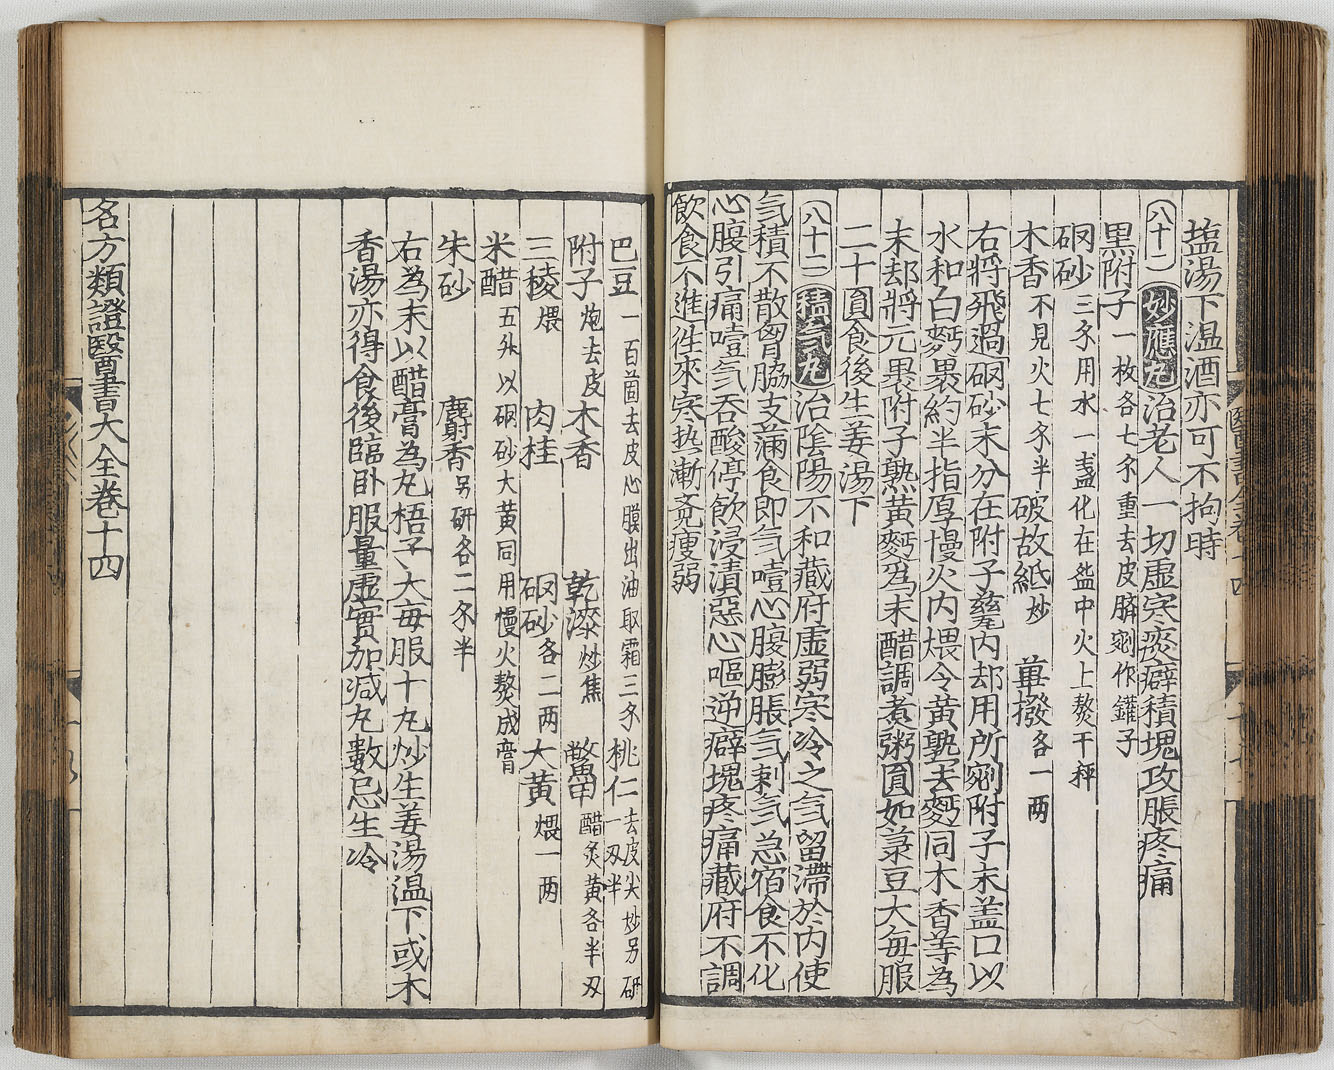 塩湯下温酒亦可不拘時
八十一 妙應丸 治老人一切虛寒痰癖積塊攻脹疼痛
黒附子一枚各七朩重去皮臍剜作鑵子
硇砂三朩用水一盞化在盌中火上熬干秤
木香不見火七朩半 破故紙炒 蓽撥各一两
右將飛過硇砂末分在附子甆内却用所剜附子末盖口以
水和白麪裹約半指厚慢火内煨令黄熟去麪同木香等為
末却將元裹附子熟黄麪為末醋調煮粥圓如菉豆大每服
二十圓食後生姜湯下
八十二 積氣丸 治陰陽不和藏府虛弱寒冷之氣留滯於内使
氣積不散胷脇支滿食即氣噎心腹膨脹氣刺氣急宿食不化
心腹引痛噎氣吞酸停飲浸漬惡心嘔逆癖塊疼痛藏府不調
飲食不進徃來寒热漸充瘦弱
巴豆一百箇去皮心膜出油取霜三朩 桃仁去皮尖炒另研一刄半
附子炮去皮 木香 乾漆炒焦 鱉甲醋炙黄各半刄
三稜煨 肉桂 硇砂各二两 大黄煨一两
米醋五升以硇砂大黄同用慢火熬成膏
朱砂 麝香另研各二朩半
右為末以醋膏為丸梧子大每服十丸炒生姜湯温下或木
香湯亦得食後臨卧服量虛實加减丸數忌生冷
名方類證醫書大全卷十四